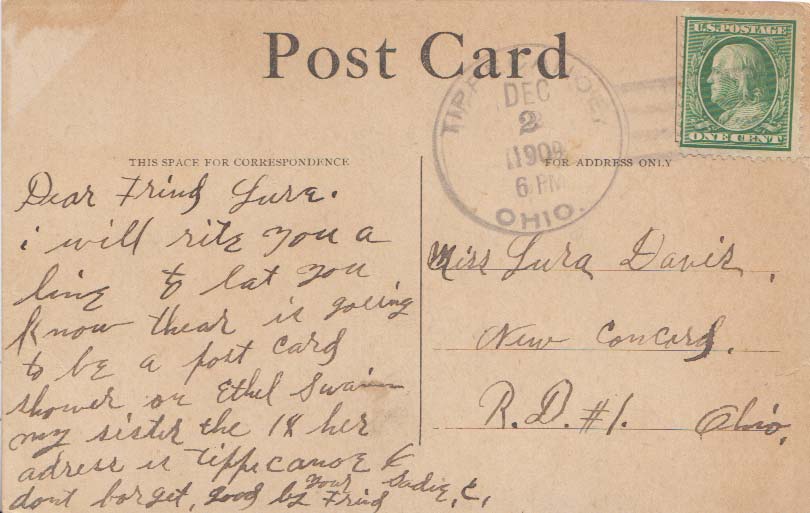 Post Card
U.S. POSTAGE
ONE CENT
TIPPECANOE,
DEC
2
1909
6 PM
OHIO.
THIS SPACE FOR CORRESPONDENCE
FOR ADDRESS ONLY
Dear Frind Lura.
i will rite you a
line to lat you
know thear is goeing
to be a post card
shower on Ethel Swain
my sister the 18 her
adress is Tippecanoe
dont borget, good by your Frind Sadie, C,
Miss Lura Davis,
New Concord.
R.D. #1. Ohio,